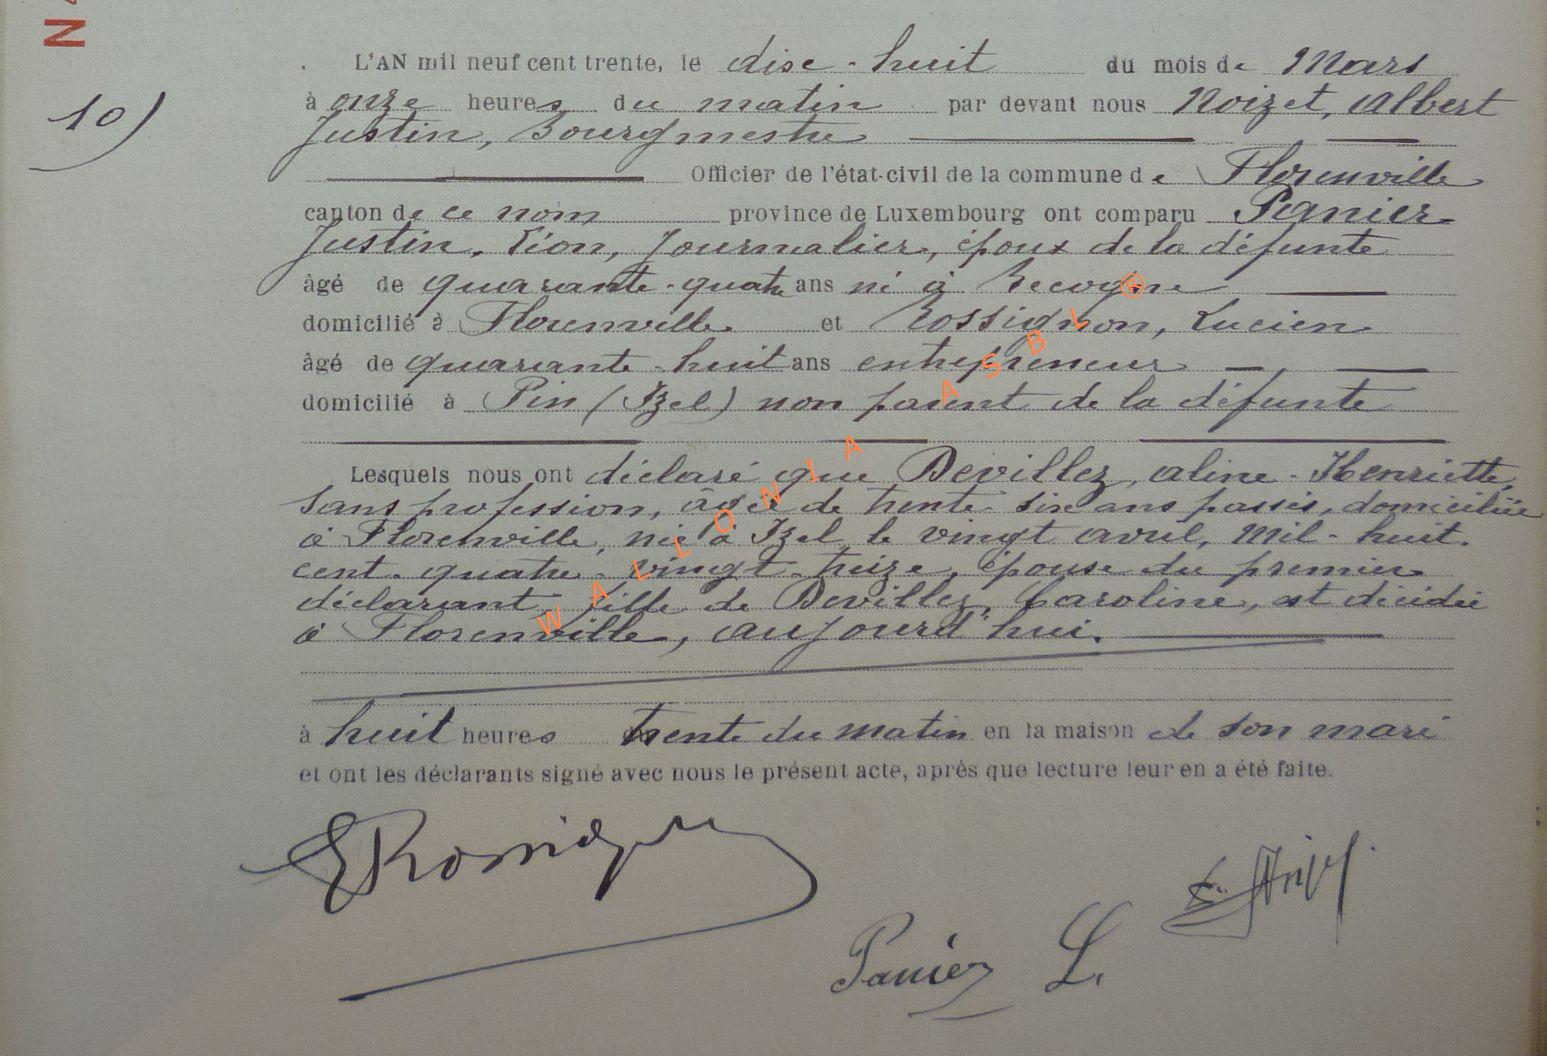 N
L'AN mil neuf cent trente, le dix-huit du mois de Mars
10)
à onze heures du matin par devant nous Noizet, Albert
Justin, Bourgmestre
Officier de l'état-civil de la commune de Florenville
canton de ce nom province de Luxembourg ont comparu Panier
Justin, Léon, Journalier, époux de la défunte
âgé de quarante-quatre ans né à Recogne
domicilié à Florenville et Rossignon, Lucien
âgé de quarante-huit ans entrepreneur
domicilié à Pin (Izel) non parent de la défunte
Lesquels nous ont déclaré que Devillez, Aline-Henriette,
sans profession, âgée de trente-six ans passés, domiciliée
à Florenville, née à Izel le vingt avril, mil-huit-
cent-quatre-vingt-treize, épouse du premier
déclarant, fille de Devillez, Caroline, est décédée
à Florenville, aujourd'hui.
à huit heures trente du matin en la maison de son mari
et ont les déclarants signé avec nous le présent acte, après que lecture leur en a été faite.
Rossignon
Panier L.
WALLONIA ASBL ®